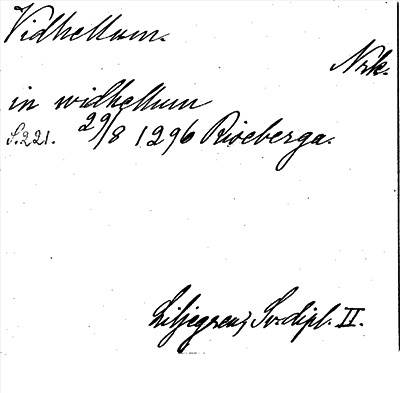 Vidhellum.
Nrk.
in widhellum
S. 221. 29/8 1296 Riseberga.
Liljegren, Sv. dipl. II.